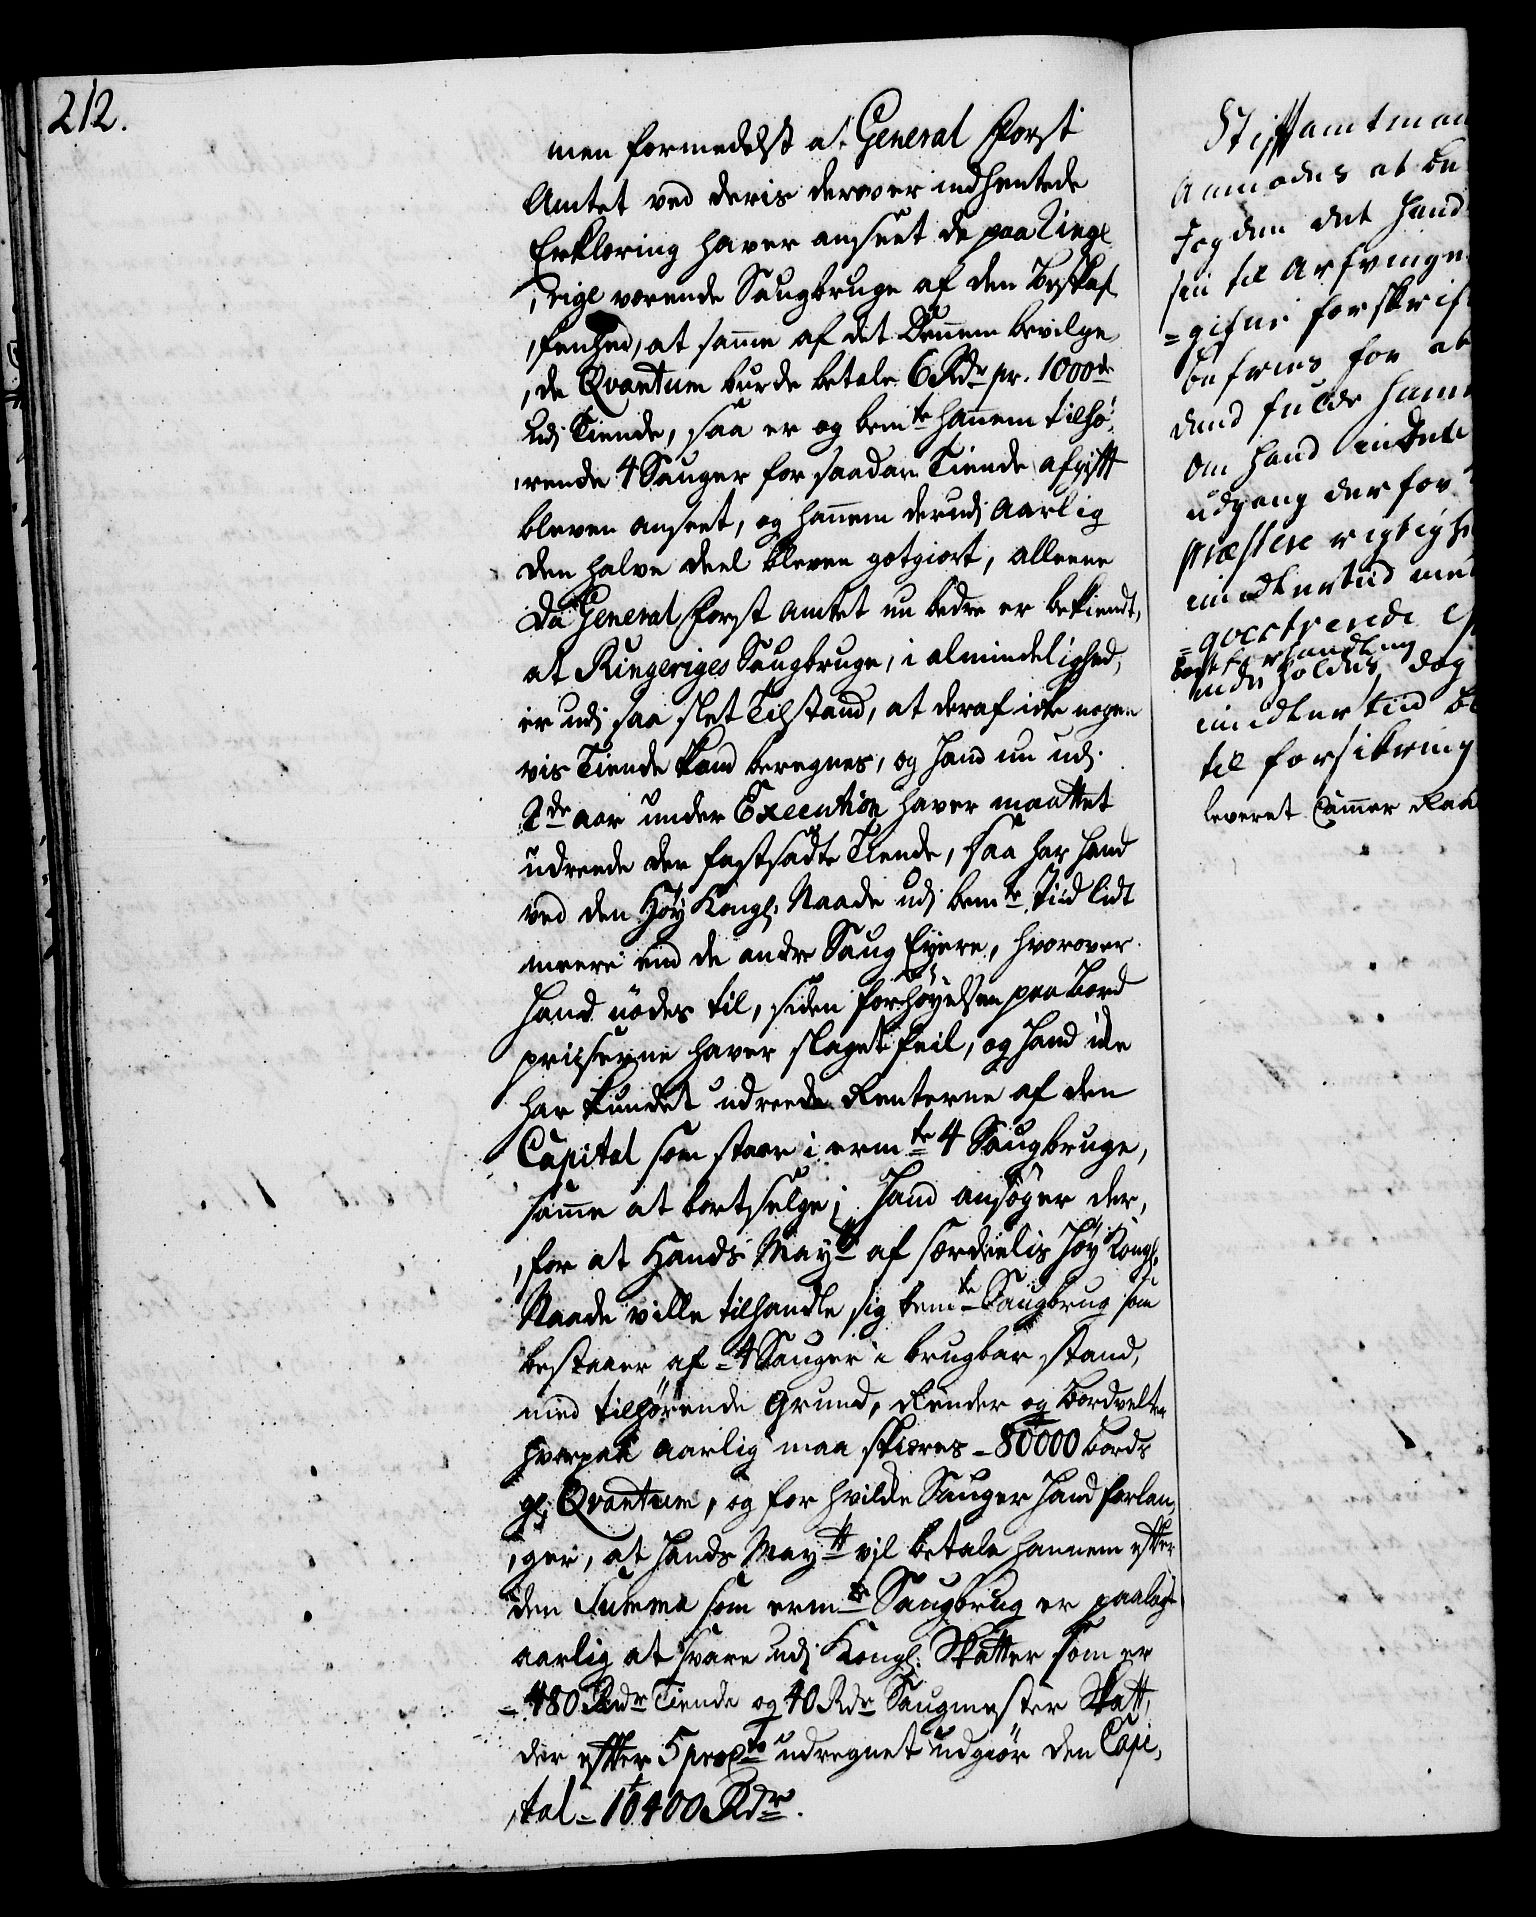 212.
men formedelst at General Forst
Amtet ved deris derover indhentede
Erklæring haver anseet de paa Ringe,
,rige værende Saugbruge af den Beskaf,
,fenhed, at samme af det Dennem bevilge,
,de Qvantum burde betale 6 Rdr pr. 1000de
udj Tiende, saa er og bemte hannem tilhø,
,rende 4 Sauger for saadan Tiende afgift
bleven anseet, og hannem derudj aarlig
den halve deel bleven gotgiort, alleene
da General Forst Amtet nu bedre er bekiendt,
at Ringeriges Saugbruge, i almindelighed,
er udj saa slet Tilstand, at deraf icke nogen
vis Tiende kand beregnes, og Hand nu udj
2de aar under Execution haver maattet
udreede den fastsadte Tiende, saa har Hand
ved den Høy Kongl: Naade udj bemte Tiid lidt
meere end de andre Saug Eyere, hvorover
Hand nødes til, siden forhøyelsen paa Bord
priiserne haver slaget feil, og Hand icke
har kundet udreede Renterne af den
Capital som staar i ermte 4 Saugbruge,
samme at bortselge; Hand ansøger der,
,for at Hands Maytt af særdeelis Høy Kongl:
Naade ville tilhandle sig bemte Saugbrug som
bestaaer af 4 Sauger i brugbar stand,
med tilhørende Grund, Render og Bordvelter
hvorpaa aarlig maa skiæres 80000 Bords
gl: Qvantum, og for hvilke Sauger Hand forlan,
,ger, at Hands Maytt vil betale hannem efter
den Summa som ermte Saugbrug er paalagt
aarlig at svare udj Kongl: Skatter som er
480 Rdr Tiende og 40 Rdr Saugmester Skatt,
der efter 5 procto udregnet udgiør den Capi,
,tal 10400 Rdr.
Stiftamtman
Anmodes at be
Fogden det Hand
sin til Arfvinge
=gifne forskrif
befries for at
dend fulde
om Hand
udgang derfor
præstere rigtigh
imidlertid med
=qvestrerede
best forhandling
inde holdes, dog
imidlertid be
til forsikring
leveret Cammer Raa